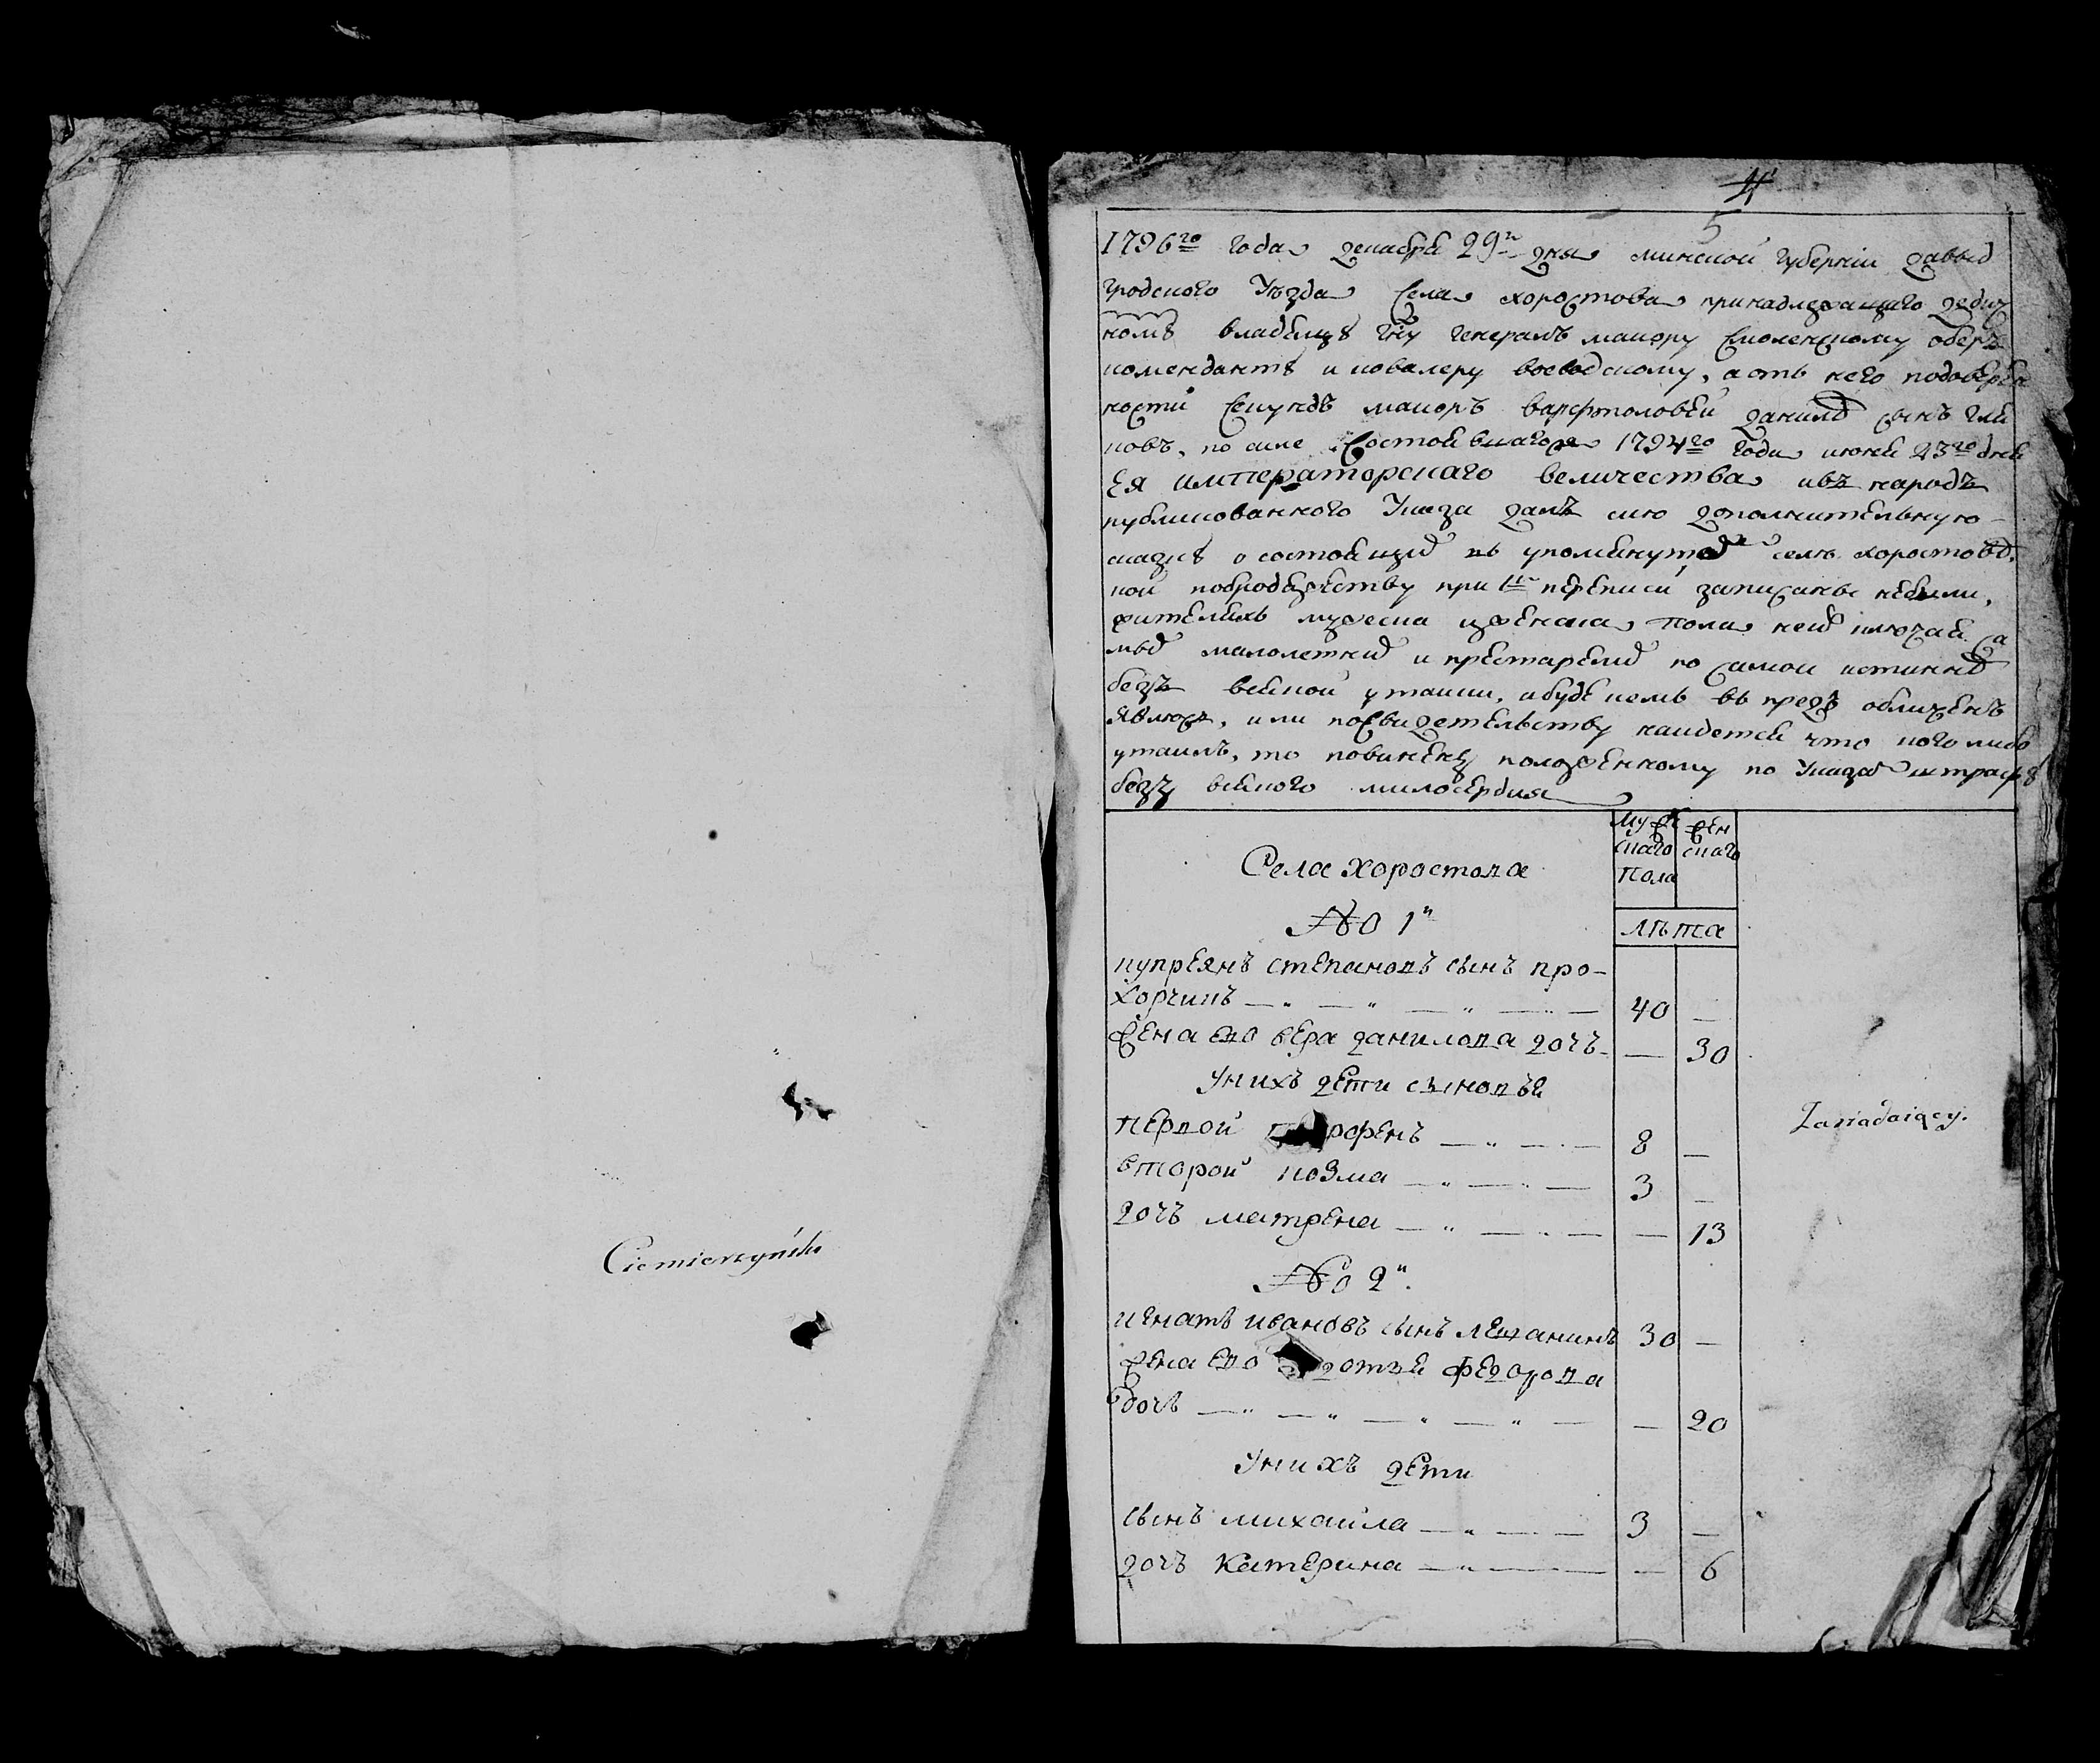 Ciemierzyński
4
5
1796го года декабря 29го дня минской губернии давыд
гродского уезда села хоростова принадлежащаго дедич
номъ владельце гну генералъ маиору смоленскому оберъ
комендантѣ и ковалеру воеводскому, а отъ него по доверен
ности секундъ маиоръ варфоломей данило сынъ
по силе состоявшагося 1794го года июня 23го дня
Ея императорскаго величества и въ народъ
публикованного указа далъ сию дополнительную
сказкѣ о состоящих въ упомянутом селе хоростове,
кои по бродяжеству при 1й переписи записаны небыли,
жителяхъ мужеска и женска пола не изключая са
мых малолетних и престарелих по самой истинне
безъ всякой утайки, а буде кемъ въ предъ обличенъ
явлюсь, или по свидетельству найдется что кого либо
утаилъ, то повиненъ положенному по указам штрафѣ
безъ всякого милосердия
Села Хоростова
муже
скаго
пола
жен
скаго
No 1й
лѣта
купреянъ степановъ сынъ про-
хорчикъ 40 —
жена ево вера данилова дочъ — 30
у нихъ дети сыновья
первой рфенъ 8 —
второй козма 3 —
дочъ матрена — 13
Zaviadaiący.
No 2й
игнатъ ивановъ сынъ лещанинъ 30 —
жена ево федорова
дочъ — 20
у нихъ дети
сынъ михаила 3 —
дочъ катерина — 6